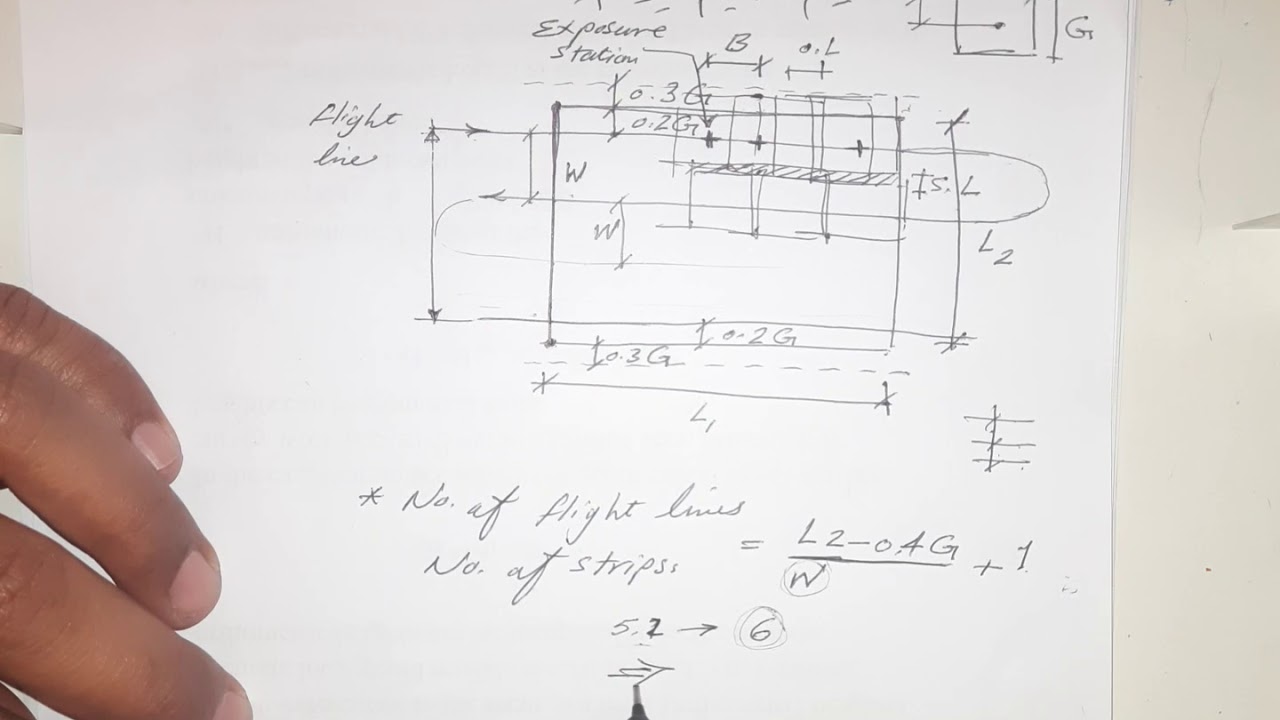 G
Exposure
station
B
o.L
0.3G
0.2G
flight
line
W
S.L
W
L2
0.2G
0.3G
L1
* No. of flight lines
No. of strips:
= L2-0.4G / W + 1
5.2 → 6
⇒